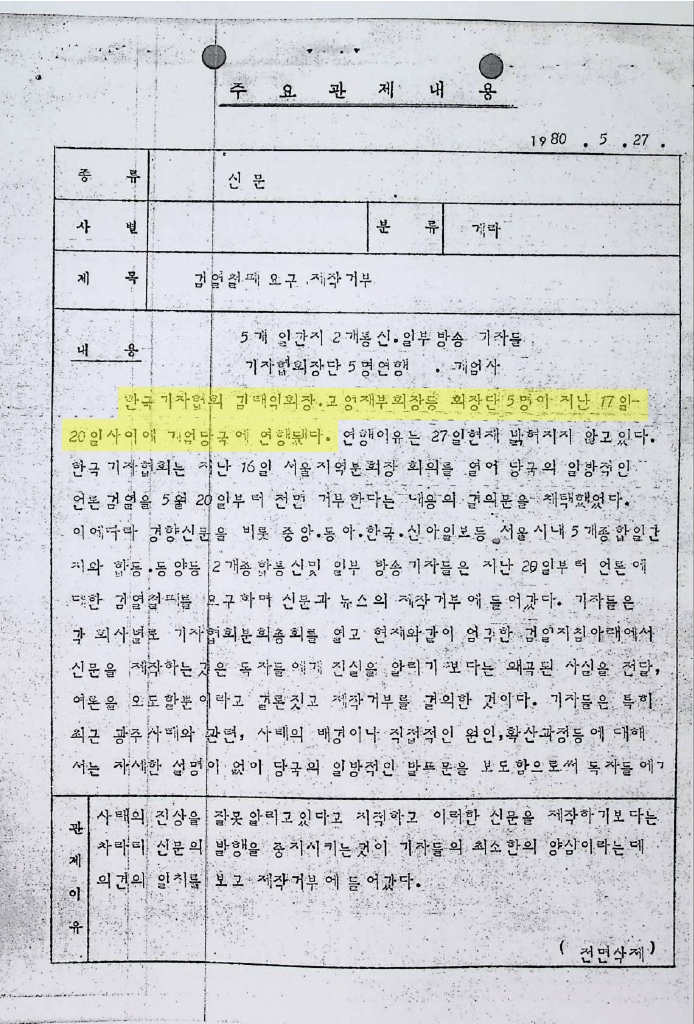 주 요 관 제 내 용
1980 . 5 . 27 .
종 류 신 문
사 별 분 류 계마
제 목 검열철폐 요구 .제작거부
내 용 5개 일간지 2개통신.일부방송 기자들
기자협회장단 5명연행 . 계엄사
한국기자협회 김태익회장.고영재부회장등 회장단 5명이 지난 17일-
20일사이에 계엄당국에 연행됐다. 연행이유는 27일현재 밝혀지지 않고있다.
한국기자협회는 지난 16일 서울지역분회장 회의를 열어 당국의 일방적인
언론검열을 5월 20일부터 전면 거부한다는 내용의 결의문을 채택했었다.
이에따라 경향신문을 비롯 중앙.동아.한국.신아일보등 서울시내 5개종합일간
지와 합동.동양등 2개종합통신및 일부 방송기자들은 지난 20일부터 언론에
대한 검열철폐를 요구하며 신문과 뉴스의 제작거부에 들어갔다. 기자들은
각 회사별로 기자협회분회총회를 열고 현재와같이 엄극한 검열지침아래에서
신문을 제작하는것은 독자들에게 진실을 알리기 보다는 왜곡된 사실을 전달,
여론을 오도할뿐이라고 결론짓고 제작거부를 결의한 것이다. 기자들은 특히
최근 광주사태와 관련, 사태의 배경이나 직접적인 원인,확산과정등에 대해
서는 자세한 설명이 없이 당국의 일방적인 발표문을 보도함으로써 독자들에게
관제이유 사태의 진상을 잘못알리고있다고 지적하고 이러한 신문을 제작하기보다는
차라리 신문의 발행을 중지시키는것이 기자들의 최소한의 양심이라는데
의견의 일치를 보고 제작거부에 들어갔다.
( 전면삭제 )